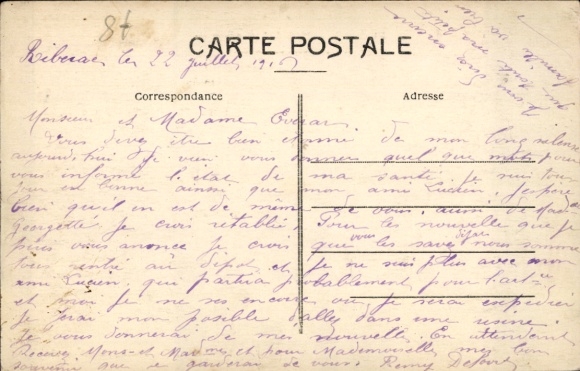 87
CARTE POSTALE
Riberac le 22 Juillet 191
Correspondance
Adresse
Monsieur et Madame
Vous devez être bien étonné de mon long silence
aujourd'hui Je vien vous donner quel que mots pour
vous informé l'état de ma santé Je suis tou
jour en bonne ainsi que mon ami Lucien J'espère
bien qu'il en est de même de vous aussi de Mad
Georgette Je crois rétabli Pour les nouvelle que je
puis vous anonce Je crois que vous les savez déjas nous somme
tous rentré au dépot et Je ne suis plus avec mon
ami Lucien, qui partira probablement pour l'act
et moi je ne ses encore ou je serai expédié
Je ferai mon posible d'alles dans une usine.
Je vous donnerai de mes nouvelle. En attendant
Recevez Mons et Mad et pour Mademoiselle mes bon
souvenir que je garderai de vous Remy